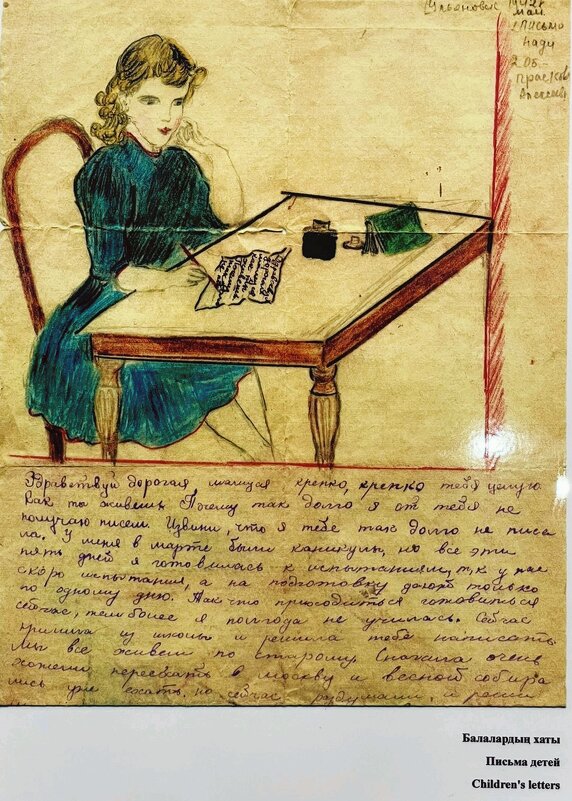 Ульяновск 1942г
май
Письмо
Нади
2.06 -
Здравствуй дорогая, мамуся крепко, крепко тебя целую.
Как ты живешь. Почему так долго я от тебя не
получаю писем. Извини, что я тебе так долго не писа
ла. У меня в марте были каникулы, но все эти
пять дней я готовилась к испытаниям, т.к. у нас
скоро испытания, а на подготовку дают только
по одному дню. Так что приходиться готовиться
сейчас, тем более я полгода не училась. Сейчас
пришла из школы и решила тебе написать.
Мы все живем по старому. Сначала очень
хотели переехать в Москву и весной собира
лись уже ехать, но сейчас раздумали, и реши
Балалардың хаты
Письма детей
Children's letters